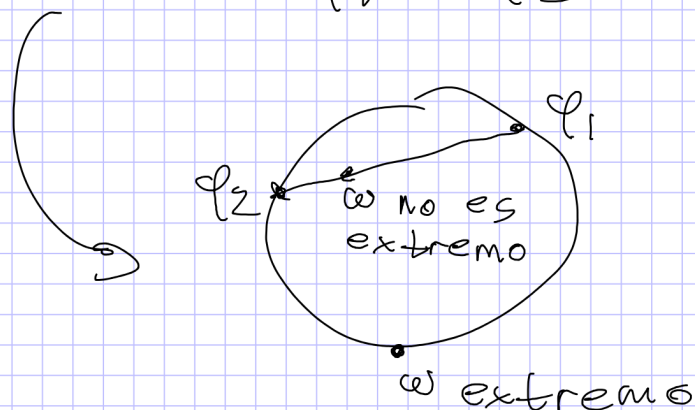 φ1
φ2
ω no es
extremo
ω extremo